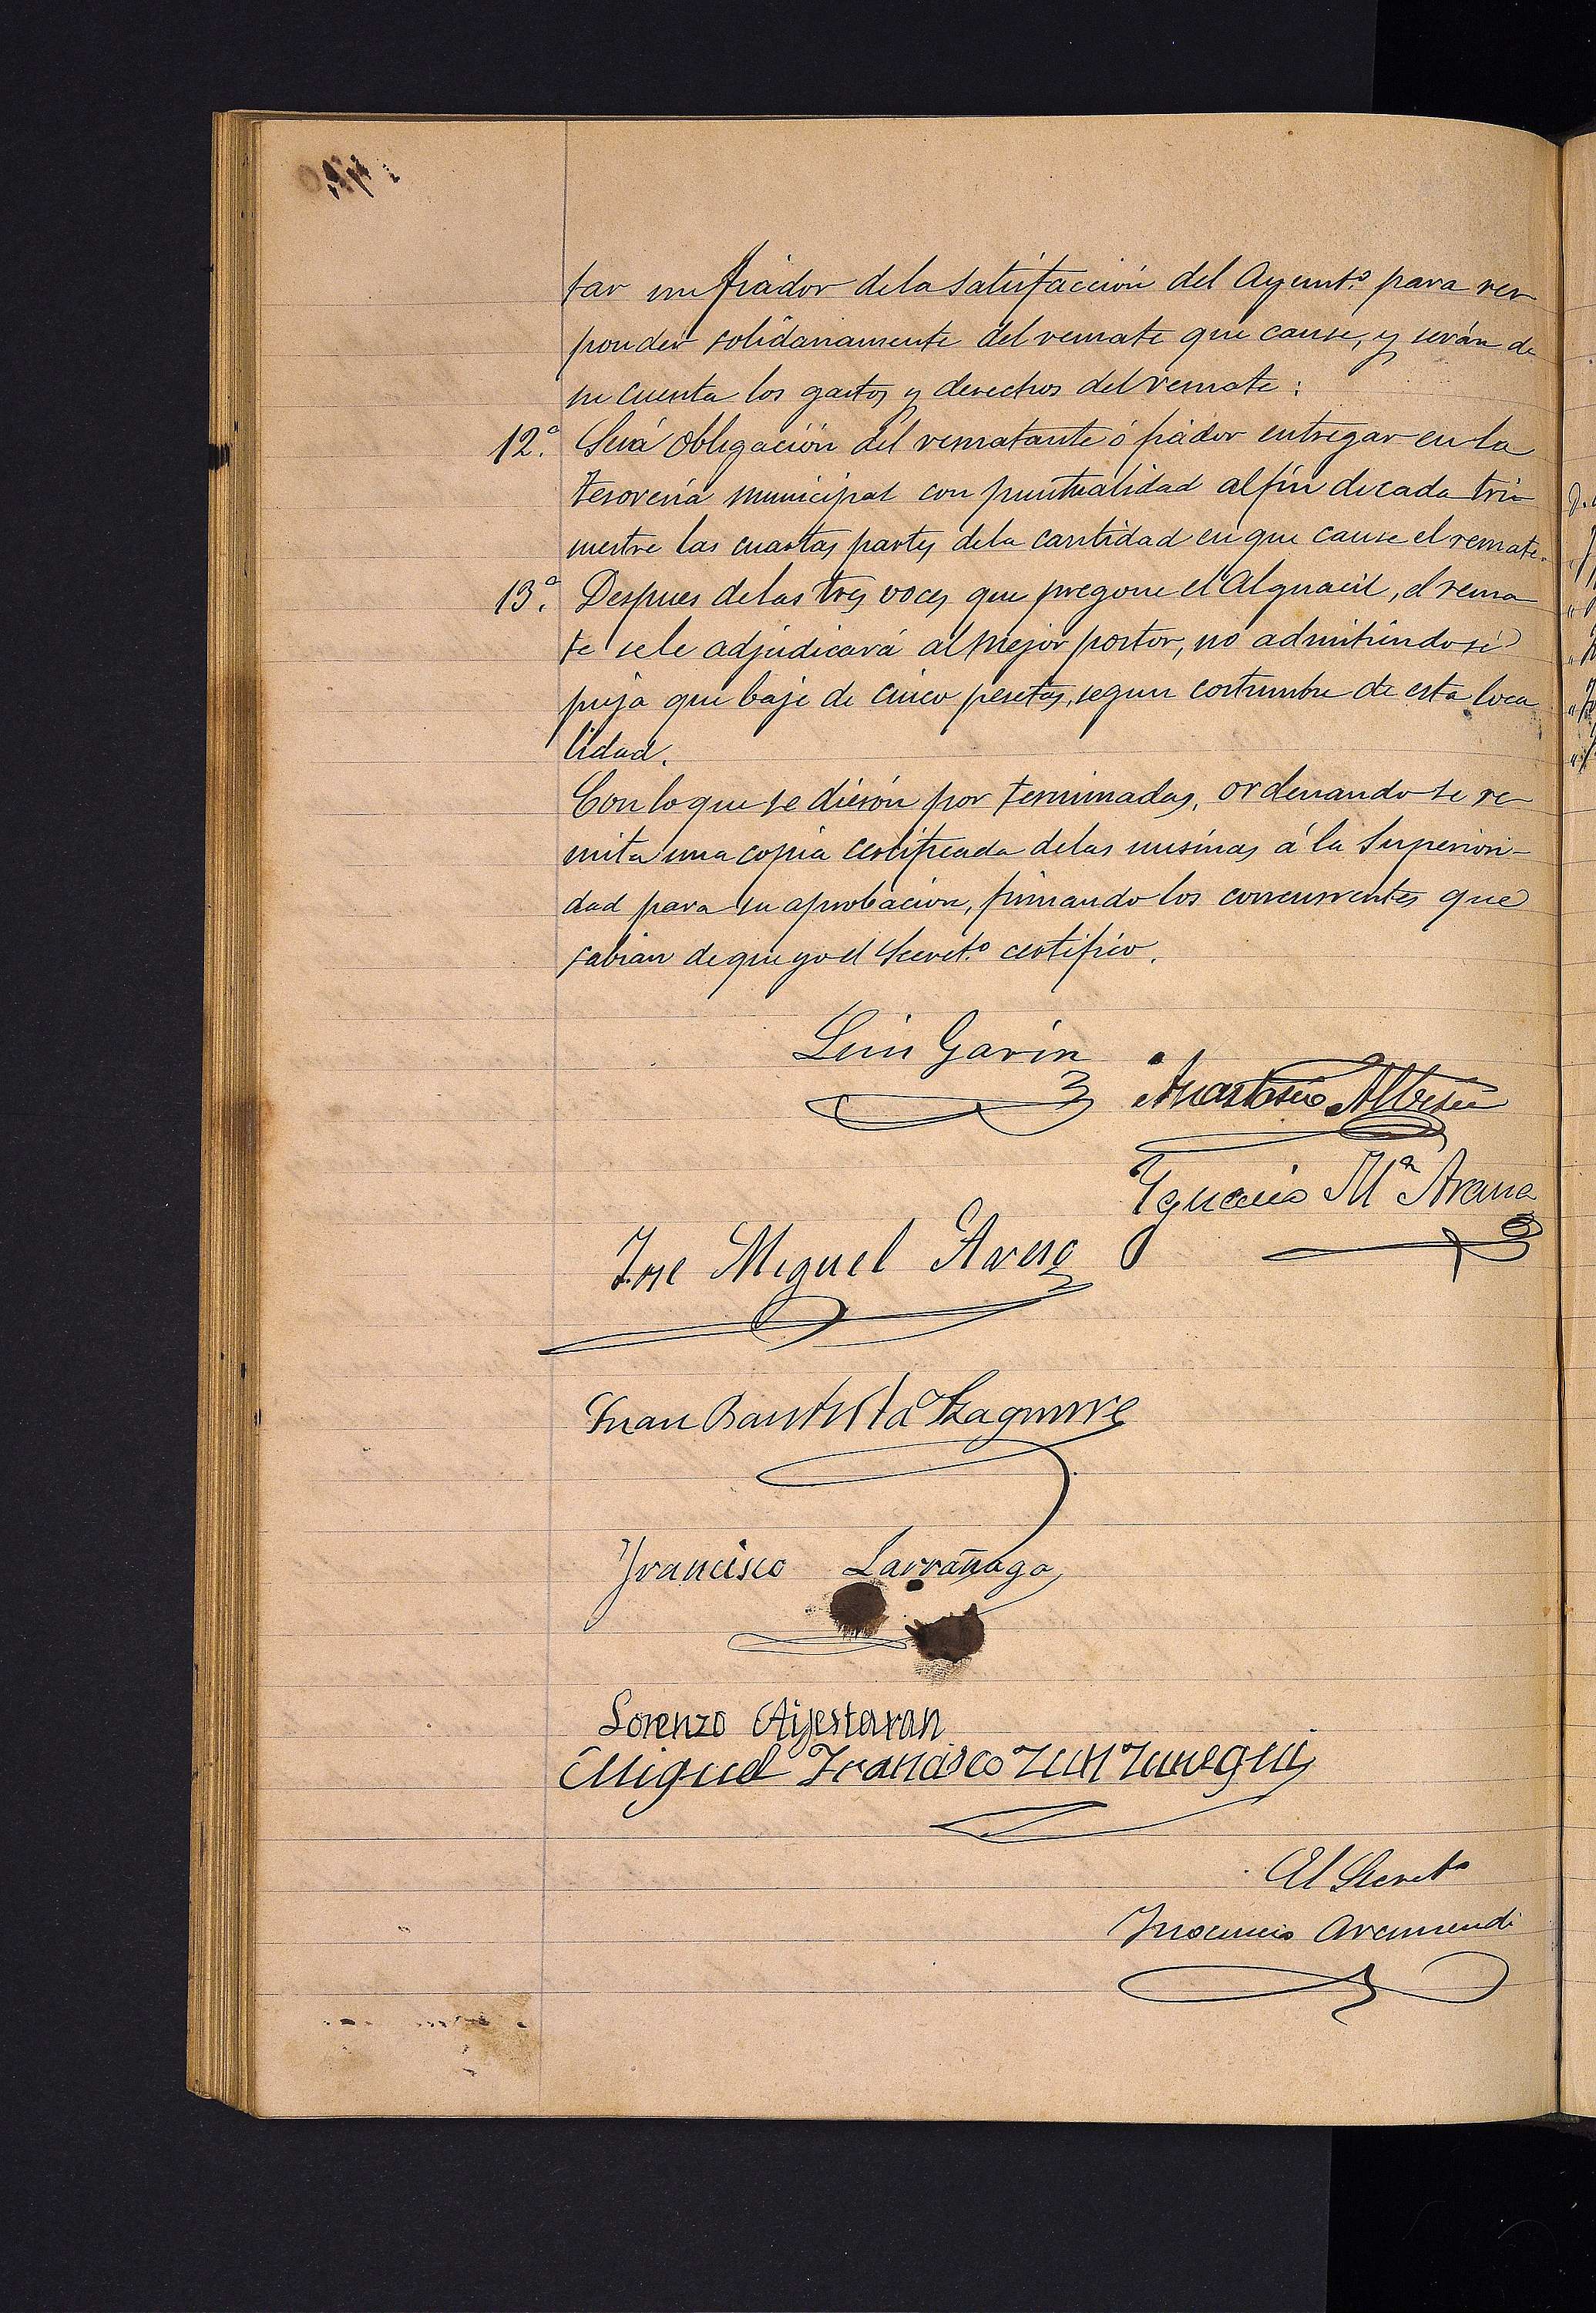 tar un fiador de la satisfacción del Ayunt.º para res
pondér solidariamente del remate que cause, y serán de
su cuenta los gastos y derechos del remate:
12.ª Será obligación del rematante ó fiador entregar en la
tesorería municipal con puntualidad al fin de cada tri
mestre las cuartas partes de la cantidad en que cause el remate.
13.ª Despues de las tres voces que pregone el Alguacil, el rema
te se le adjudicará al mejor postor, no admitiendose
puja que baje de cinco pesetas, segun costumbre de esta loca
lidad.
Con lo que se dierón por terminadas, ordenando se re
mita una copia certificada de las mismas á la Superiori-
dad para su aprobacion, firmando los concurrentes que
sabian de que yo el Secret.º certifico.
Luis Garin
Anastasio Albisu
Ygnacio Mª Arana
Jose Miguel
Juan Bautista Yzaguirre
Francisco Larrañaga
Lorenzo Ayestaran
Miguel Francisco Zunzunegui
El Secretº
Inocencio Aramendi